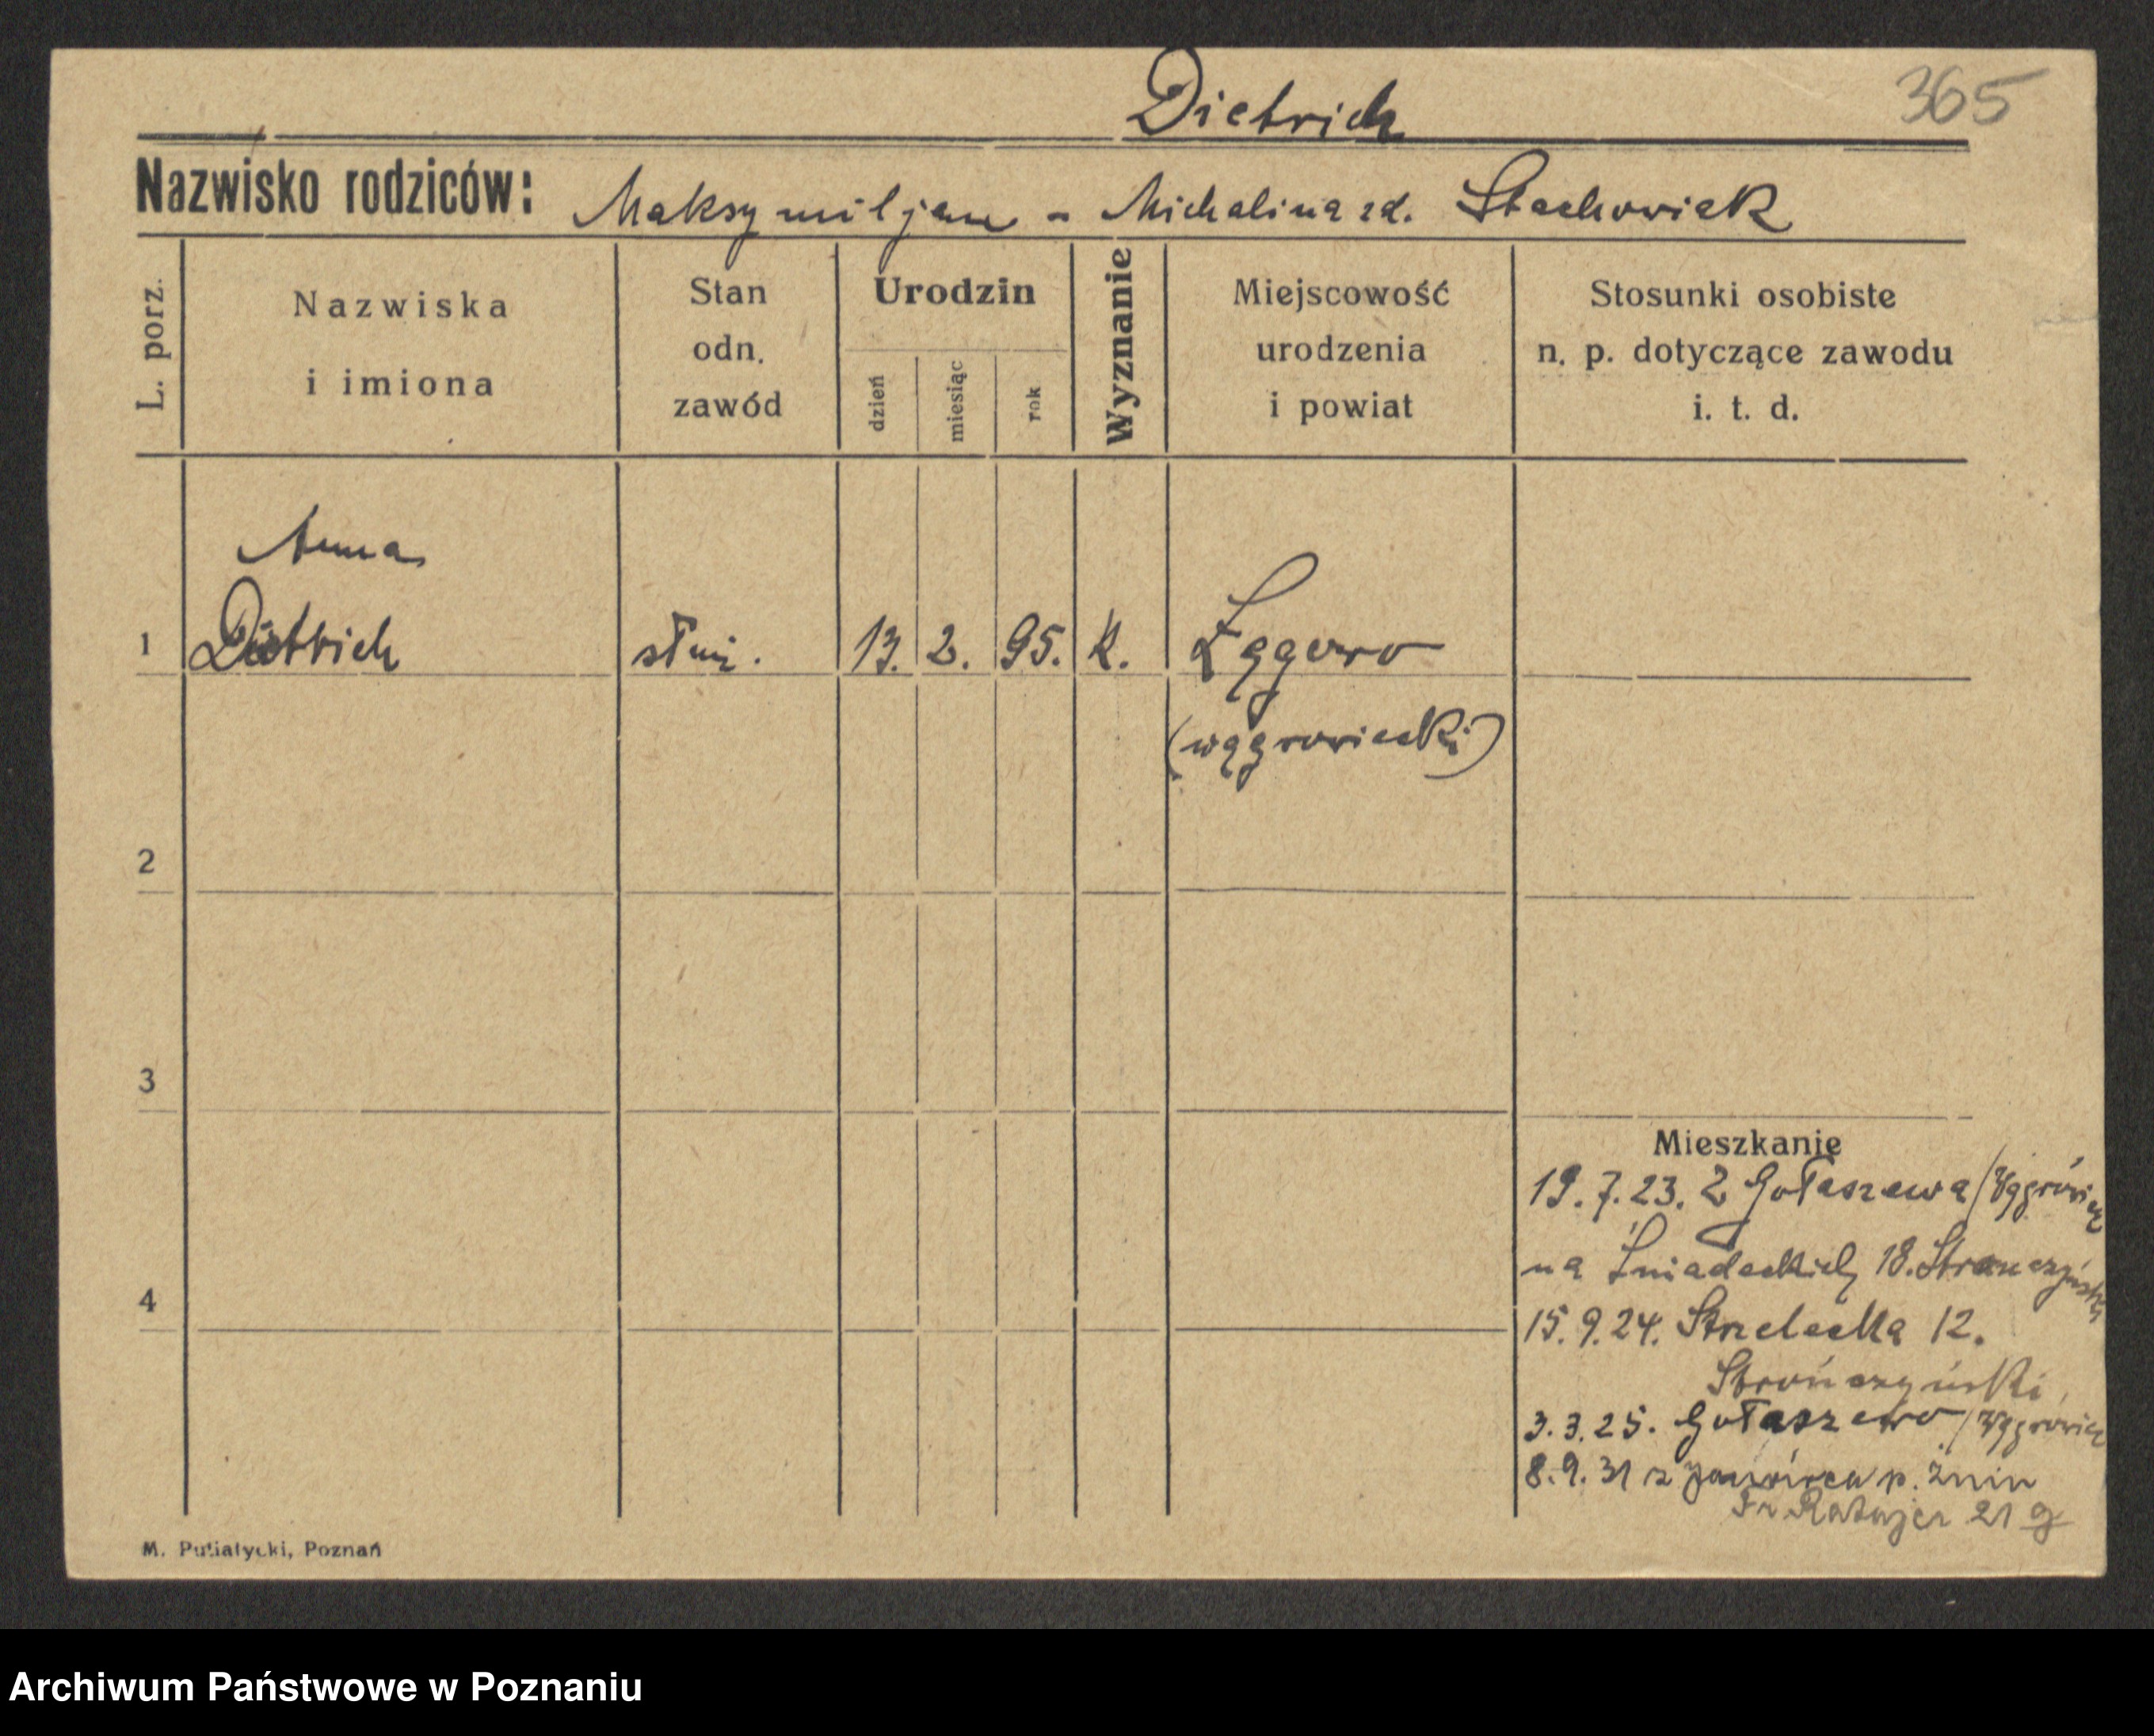 Dietrich
365
Nazwisko rodziców: Maksymiljan - Michalina zd. Stachowiak
L. porz.
Nazwiska
i imiona
Stan
odn.
zawód
Urodzin
dzień
miesiąc
rok
Wyznanie
Miejscowość
urodzenia
i powiat
Stosunki osobiste
n. p. dotyczące zawodu
i. t. d.
Anna
1 Dietrich służ. 13. 2. 95. K. Łęgowo
(wągrowiecki)
2
3
4
Mieszkanie
19.7.23. Z Gołaszewa/Wągrówiec
na Śniadeckich 18.
15.9.24. Strzelecka 12.
Strończyński
3.3.25. Gołaszewo/Wągrówiec
8.9.31 z p. Żnin
Fr Ratajcz 21 g
M. Putiatycki, Poznań
Archiwum Państwowe w Poznaniu